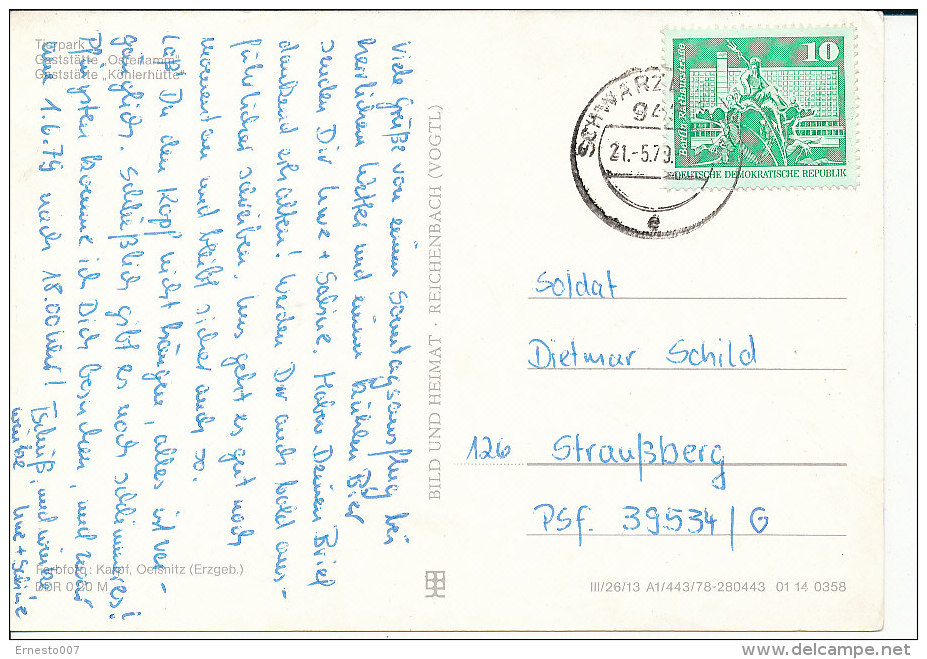 Tierpark
Gaststätte „Osterlamm“
Gaststätte „Köhlerhütte“
Viele Grüße von einem Sonntagsausflug bei
herrlichem Wetter und einem kühlen Bier
senden Dir Uwe + Sabine. Haben Deinen Brief
dankend erhalten! Werden Dir auch bald aus-
führlicher schreiben. Uns geht es gut noch
momentan und bleibt sicher auch so.
Laß Du den Kopf nicht hängen, alles ist ver-
gänglich. Schließlich gibt es noch schlimmeres!
Pfingsten komme ich Dich besuchen, und zwar
am 1.6.79 nach 18.00 Uhr! Tschüß, und winke
winke Uwe + Sabine
Farbfoto: Karpf, Oelsnitz (Erzgeb.)
DDR 0,20 M
BILD UND HEIMAT · REICHENBACH (VOGTL)
10
Berlin, Neptunbrunnen
DEUTSCHE DEMOKRATISCHE REPUBLIK
SCHWARZ
94
21.-5.79.
e
Soldat
Dietmar Schild
126 Straußberg
PSF. 39534/G
III/26/13 A1/443/78-280443 01 14 0358
Ernesto007
delcampe.net